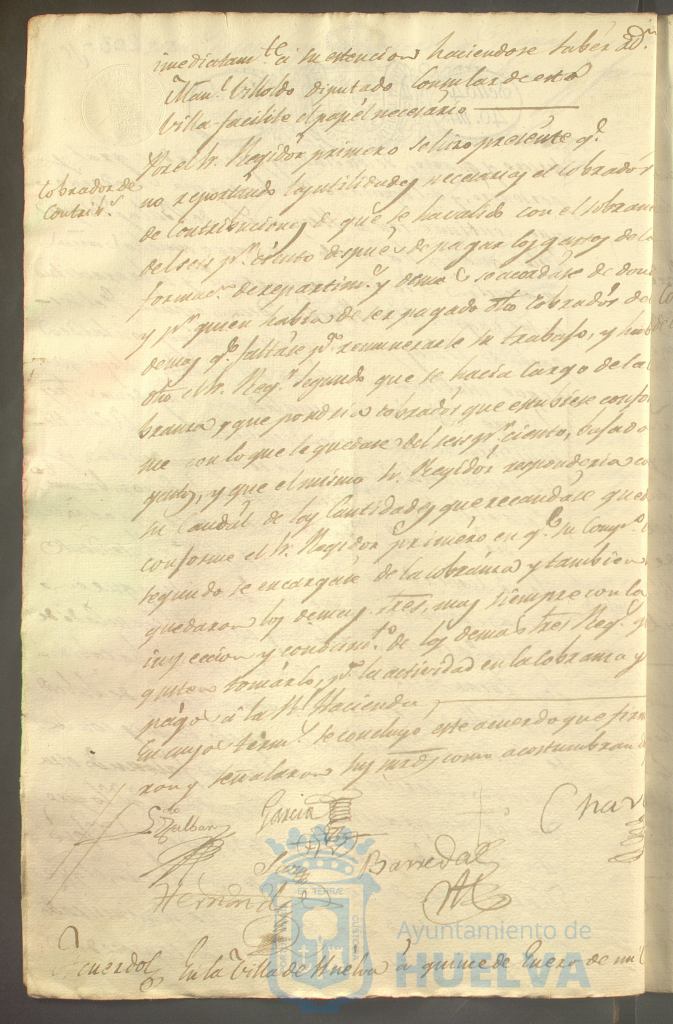 imediatam.te á su estencion haciendose saber a D.n
Man.l Villoldo diputado Consular de esta
Villa facilite el papel necesario
Cobrador de
Contrib.s
Por el Sr. Regidor primero se hizo presente q.e
no reportando las utilidades necesarias el cobrador
de Contribuciones de que se ha valido con el sobran
del seis p.r ciento despues de pagar los gastos de la
formac.n de repartim.s y demas se acordase de don
y p.r quien habia de ser pagado dho cobrador de lo
demas q.e faltase p.a remunerarle su trabajo, y hab
dho el Sr. Reg.r segundo que se hacia cargo de la
branza, y que pondria cobrador que estubiese confo
me con lo que le quedase del seis p.r ciento, bajado
gastos, y que el mismo Sr. Regidor responderia co
su Caudal de las Cantidades que recaudase qued
conforme el Sr. Regidor primero en q.e su Comp.o
segundo se encargase de la cobranza y tambien
quedaron los demas tres, mas siempre con la
inspeccion y conocim.to de los demas tres Reg.s
gusten tomarlo, p.a la actividad en la cobranza y
pago á la R.l Hacienda
En cuyos term.s se concluyó este acuerdo que firm
ron y señalaron sus mrds como acostumbran
Garcia
Barreda
Hernand
Acuerdo En la Villa de Huelva á quince de Enero de mil
Ayuntamiento de
HUELVA